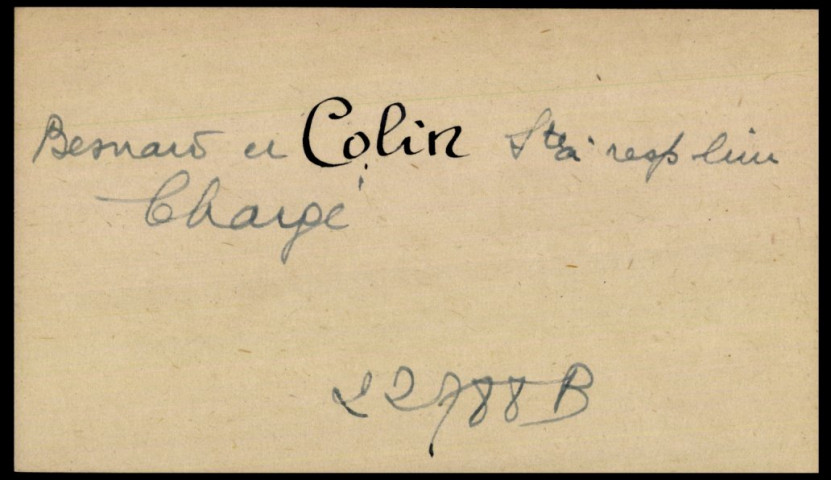 Besnard et Colin Sté à resp lim
Chargé
22788 B